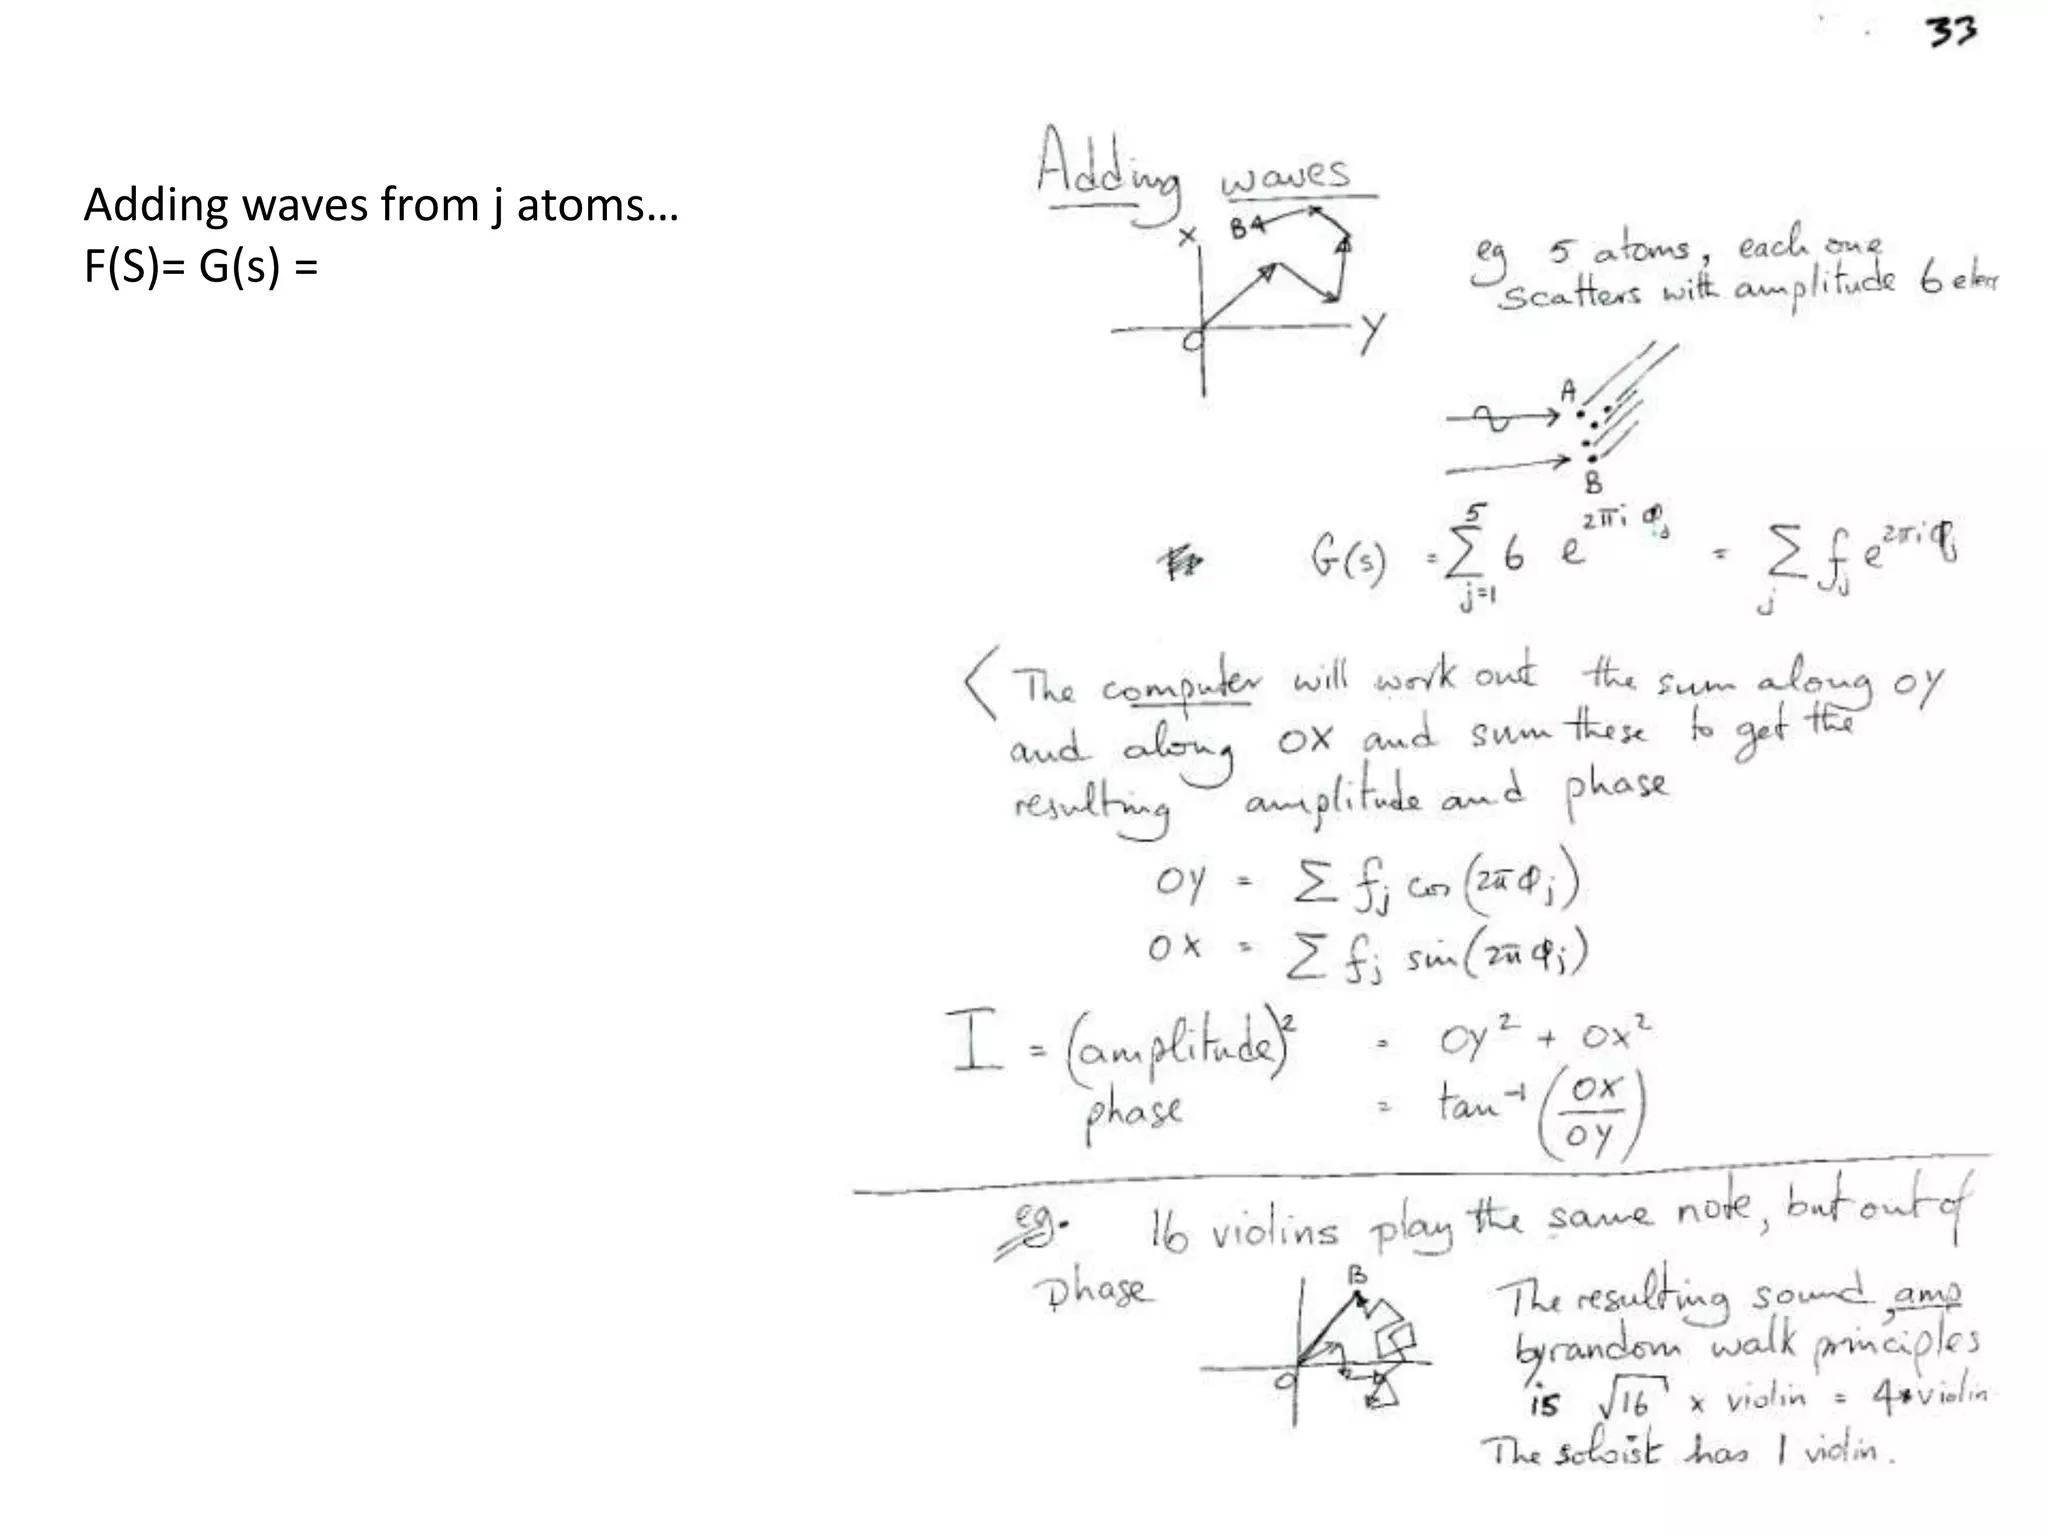 33
Adding waves from j atoms...
F(S)= G(s) =
Adding waves
X
B
O
Y
eg 5 atoms, each one
scatters with amplitude 6 elec
A
B
G(s) = Σ_{j=1}^{5} 6 e^{2πi φ_j} = Σ_j f_j e^{2πi φ_j}
< The computer will work out the sum along OY
and along OX and sum these to get the
resulting amplitude and phase
OY = Σ f_j cos(2π φ_j)
OX = Σ f_j sin(2π φ_j)
I = (amplitude)² = OY² + OX²
phase = tan⁻¹ (OX/OY)
eg. 16 violins play the same note, but out of
phase
B
O
The resulting sound, amp
by random walk principles
is √16 x violin = 4 violin
The soloist has 1 violin.